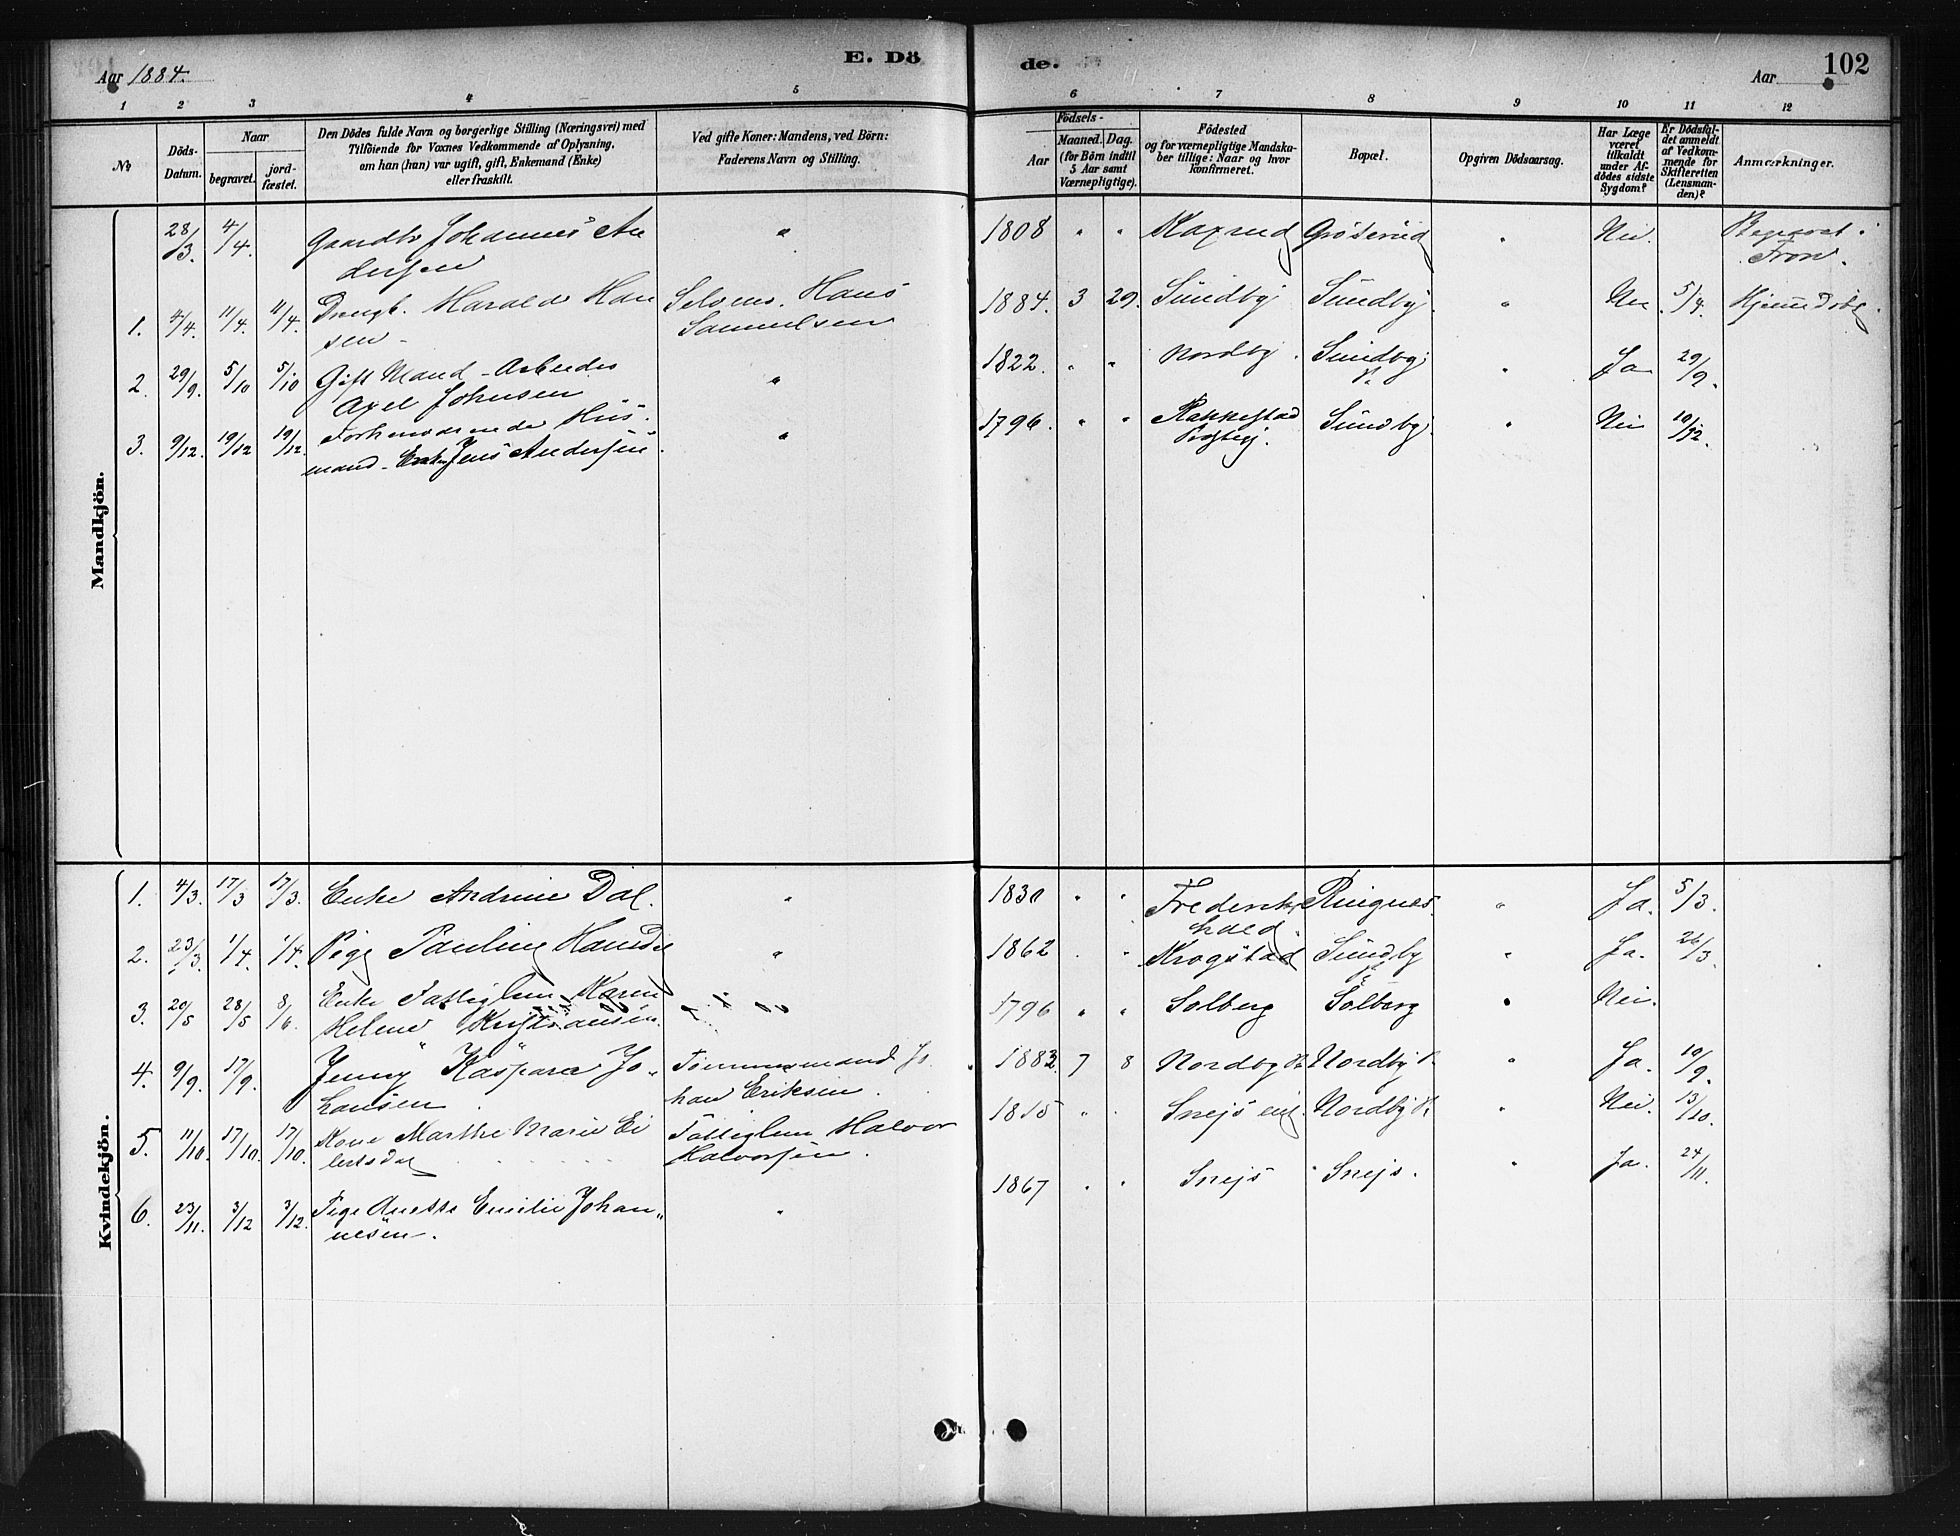 Aar 1884.
E. Dö
de.
Aar
102
1 2 3 4 5 6 7 8 9 10 11 12
No
Döds-
Datum.
Naar
begravet.
jord-
fæstet.
Den Dödes fulde Navn og borgerlige Stilling (Næringsvei) med
Tilföiende for Voxnes Vedkommende af Oplysning,
om han (hun) var ugift, gift, Enkemand (Enke)
eller fraskilt.
Ved gifte Koner: Mandens, ved Börn:
Faderens Navn og Stilling.
Födsels-
Aar
Maaned. Dag.
(for Börn indtil
5 Aar samt
Værnepligtige).
Födested
og for værnepligtige Mandska-
ber tillige: Naar og hvor
konfirmeret.
Bopæl.
Opgiven Dödsaarsag.
Har Læge
været
tilkaldt
under Af-
dödes sidste
Sygdom?
Er Dödsfal-
det anmeldt
af Vedkom-
mende for
Skifteretten
(Lensman-
den)?
Anmærkninger.
Mandkjön.
28/3. 4/4. Gaardbr Johannes An
dersen " 1808 " " Grøterud " Nei. Begravet i
Fron.
1. 4/4. 11/4. 11/4. Drengb. Harald Han
sen - Selveier. Hans
Samuelsen 1884. 3 29. Sundby Sundby. " Nei 5/4. Hjemmedøbt.
2. 29/9. 5/10 5/10 Gift Mand - Arbeider
Axel Johnsen " 1822. " " Nordby. Sundby " Ja 29/9.
3. 9/12. 19/12 19/12. Forhenværende Hus-
mand - Enkem Jens Andersen. " 1796. " " Rakkestad
Prgtgj. Sundby. " Nei 10/12.
Kvindekjön.
1. 4/3. 17/3 17/3. Enke Andrine Dal. " 1830 " " Frederiks
hald. Ringnes. " Ja. 5/3.
2. 23/3. 1/4. 1/4. Pige Pauline Hansdr " 1862 " " Krogstad Sundby " Ja. 26/3.
3. 20/5 28/5 8/6. Enke Fattiglem Karen
Helene Kristiansen. " 1796 " " Solberg Solberg " Nei.
4. 9/9. 17/9. Jenny Kaspara Jo-
hansen Tømmermand Jo-
han Eriksen. 1883. 7 8 Nordby Nordby " Ja. 10/9.
5. 11/10. 17/10. 17/10. Kone Marthe Marie Ei
lertsdal Fattiglem Halvor
Halvorsen. 1815 " " Snejs eie Nordby " Nei. 13/10.
6. 23/11. 3/12 3/12. Pige Anette Emilie Johan-
nesen. " 1867 " " Snejs Snejs. " Ja. 24/11.